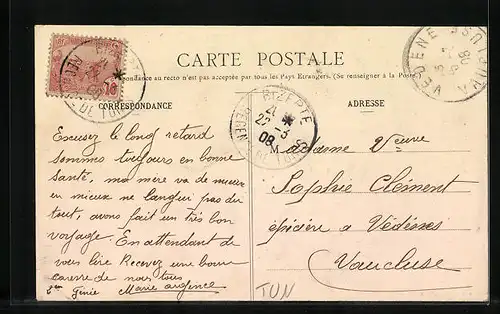 CARTE POSTALE
Correspondance au recto n'est pas acceptée par tous les Pays Etrangers. (Se renseigner à la Poste.)
CORRESPONDANCE
ADRESSE
BIZERTE
22 -3
08
VEDENE
VAUCLUSE
Excusez le long retard
sommes toujours en bonne
santé, ma mère va de mieux
en mieux ne langui pas du
tout, avons fait un très bon
voyage. En attendant de
vous lire Recevez une bonne
caresse de nous tous
Génie Marie
Madame Veuve
Sophie Clément
épicière à Védènes
Vaucluse
TUN